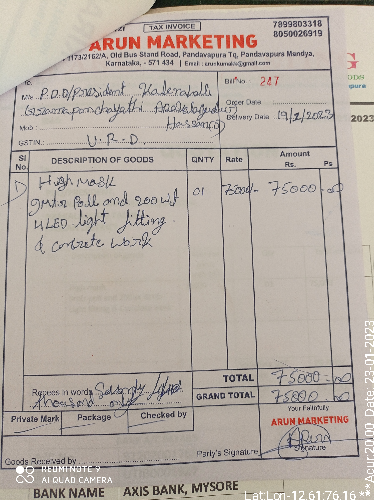 TAX INVOICE
7899803318
8050026919
ARUN MARKETING
1173/2162/A, Old Bus Stand Road, Pandavapura Tq, Pandavapura Mandya,
Karnataka, - 571 434 | Email : arunkumakk@gmail.com
M/s P.D.O/President
Bill No. 247
Order Date:
Delivery Date 19/1/2023
Mob :
Hassan
GSTIN.: U.R.D.
Sl No. DESCRIPTION OF GOODS QNTY Rate Amount Rs. Ps
1) High mask
9 Mtr Poll and 200 wt 01 75000/- 75000=00
4 LED light fitting
& concrete work
TOTAL 75000=00
Rupees in words Seventy five thousand only
GRAND TOTAL 75000=00
Your Faithfully
Private Mark Package Checked by
ARUN MARKETING
Goods Received by
Party's Signature
Signature
REDMI NOTE 9
AI QUAD CAMERA
BANK NAME AXIS BANK, MYSORE
2023
G
ODS
pura
LatLon-12.61:76.16
**Acur20.00 Date 23-01-2023